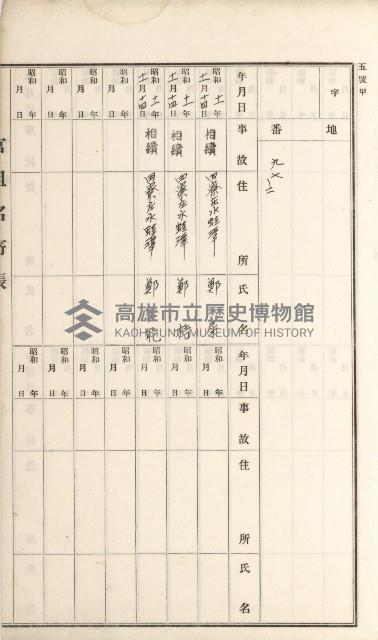 五號甲
字
地
番 九七ノ二
年月日 事故 住所 氏名
昭和十一年十一月十四日 相續 田寮庄水蛙潭 鄭
昭和十一年十一月十四日 相續 田寮庄水蛙潭 鄭
昭和十一年十一月十四日 相續 田寮庄水蛙潭 鄭
昭和 年 月 日
昭和 年 月 日
昭和 年 月 日
昭和 年 月 日
年月日 事故 住所 氏名
昭和 年 月 日
昭和 年 月 日
昭和 年 月 日
昭和 年 月 日
昭和 年 月 日
昭和 年 月 日
昭和 年 月 日
租名寄帳
高雄市立歷史博物館
KAOHSIUNG MUSEUM OF HISTORY